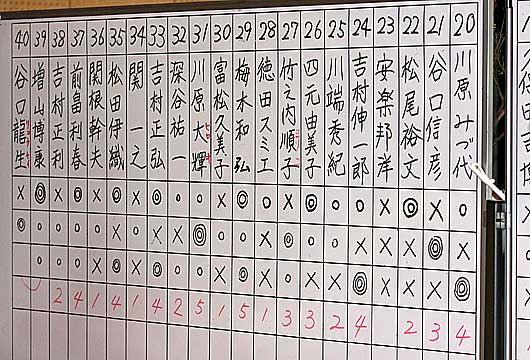 20 川原みづ代 ○ × ◎ 4
21 谷口信彦 × ◎ × 3
22 松尾裕文 ◎ ○ × 2
23 安楽邦洋 × × ×
24 吉村伸一郎 × × ◎ 4
25 川端秀紀 ○ ○ × 2
26 四元由美子 ◎ ○ × 3
27 竹之内順子 × ◎ × 3
28 徳田スミエ ○ × ○ 1
29 梅木和弘 ◎ ○ ◎ 5
30 富松久美子 × ○ × 1
31 川原大輝 ○ ◎ ○ 5
32 深谷祐一 ○ × ○ 2
33 吉村正弘 ◎ × ◎ 4
34 関一之 ○ ○ × 1
35 松田伊織 ○ × ◎ 4
36 関根幹夫 ◎ ○ × 1
37 前畠利春 ◎ ○ ○ 4
38 吉村正利 ○ ○ ○ 2
39 増山博康 ◎ ○ ○
40 谷口龍生 × ◎